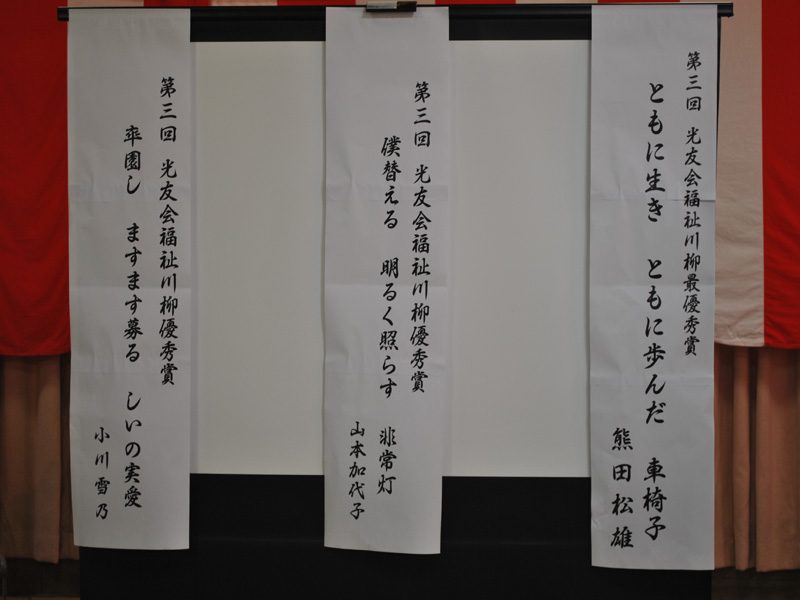 第三回 光友会福祉川柳最優秀賞
ともに生き ともに歩んだ 車椅子
熊田松雄
第三回 光友会福祉川柳優秀賞
僕替える 明るく照らす 非常灯
山本加代子
第三回 光友会福祉川柳優秀賞
卒園し ますます募る しいの実愛
小川雪乃